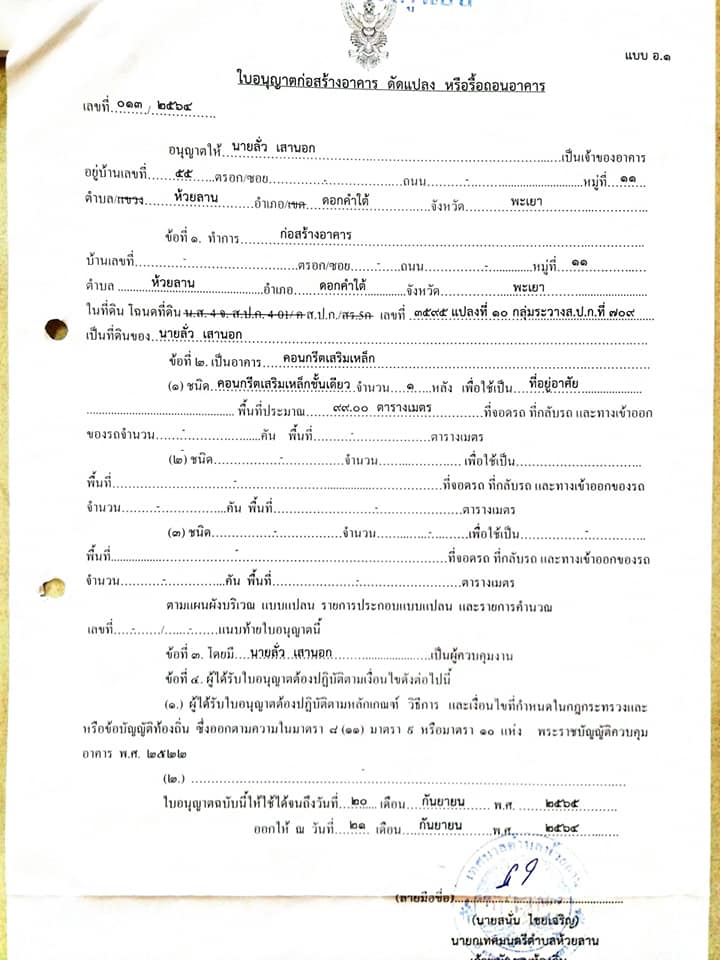 แบบ อ.๑
ใบอนุญาตก่อสร้างอาคาร ดัดแปลง หรือรื้อถอนอาคาร
เลขที่ ๐๑๓ / ๒๕๖๔
อนุญาตให้ นายลั่ว เสานอก เป็นเจ้าของอาคาร
อยู่บ้านเลขที่ ๕๕ ตรอก/ซอย - ถนน - หมู่ที่ ๑๑
ตำบล/แขวง ห้วยลาน อำเภอ/เขต ดอกคำใต้ จังหวัด พะเยา
ข้อที่ ๑. ทำการ ก่อสร้างอาคาร
บ้านเลขที่ - ตรอก/ซอย - ถนน - หมู่ที่ ๑๑
ตำบล ห้วยลาน อำเภอ ดอกคำใต้ จังหวัด พะเยา
ในที่ดิน โฉนดที่ดิน น.ส. 4 จ. ส.ป.ก. 4-01/ก ส.ป.ก./สร.5ก เลขที่ ๓๕๙๕ แปลงที่ ๑๐ กลุ่มระวางส.ป.ก.ที่ ๗๐๙
เป็นที่ดินของ นายลั่ว เสานอก
ข้อที่ ๒. เป็นอาคาร คอนกรีตเสริมเหล็ก
(๑) ชนิด คอนกรีตเสริมเหล็กชั้นเดียว จำนวน ๑ หลัง เพื่อใช้เป็น ที่อยู่อาศัย
พื้นที่ประมาณ ๙๙.๐๐ ตารางเมตร ที่จอดรถ ที่กลับรถ และทางเข้าออก
ของรถจำนวน - คัน พื้นที่ - ตารางเมตร
(๒) ชนิด - จำนวน - เพื่อใช้เป็น
พื้นที่ - ที่จอดรถ ที่กลับรถ และทางเข้าออกของรถ
จำนวน - คัน พื้นที่ - ตารางเมตร
(๓) ชนิด - จำนวน - เพื่อใช้เป็น -
พื้นที่ - ที่จอดรถ ที่กลับรถ และทางเข้าออกของรถ
จำนวน - คัน พื้นที่ - ตารางเมตร
ตามแผนผังบริเวณ แบบแปลน รายการประกอบแบบแปลน และรายการคำนวณ
เลขที่ - / - แนบท้ายใบอนุญาตนี้
ข้อที่ ๓. โดยมี นายลั่ว เสานอก เป็นผู้ควบคุมงาน
ข้อที่ ๔. ผู้ได้รับใบอนุญาตต้องปฏิบัติตามเงื่อนไขดังต่อไปนี้
(๑.) ผู้ได้รับใบอนุญาตต้องปฏิบัติตามหลักเกณฑ์ วิธีการ และเงื่อนไขที่กำหนดในกฎกระทรวงและ
หรือข้อบัญญัติท้องถิ่น ซึ่งออกตามความในมาตรา ๘ (๑๑) มาตรา ๙ หรือมาตรา ๑๐ แห่ง พระราชบัญญัติควบคุม
อาคาร พ.ศ. ๒๕๒๒
(๒.) -
ใบอนุญาตฉบับนี้ให้ใช้ได้จนถึงวันที่ ๒๐ เดือน กันยายน พ.ศ. ๒๕๖๕
ออกให้ ณ วันที่ ๒๑ เดือน กันยายน พ.ศ. ๒๕๖๔
เทศบาลตำบลห้วยลาน
(ลายมือชื่อ)
(นายสนั่น ไชยเจริญ)
นายกเทศมนตรีตำบลห้วยลาน